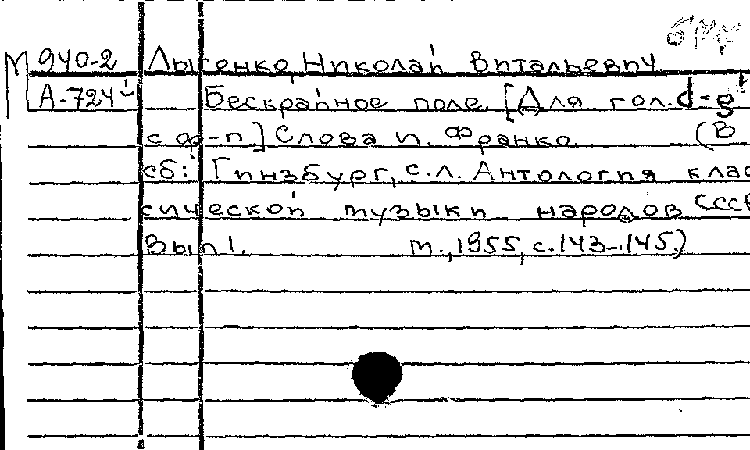 М 940-2 Лысенко, Николай Витальевич
А-724 Бескрайное поле. [Для гол. d-g
с ф-п.] Слова И. Франко. (В
сб: Гинзбург, С.Л. Антология клас
сической музыки народов СССР
Вып 1. М., 1955, с. 143-145.)